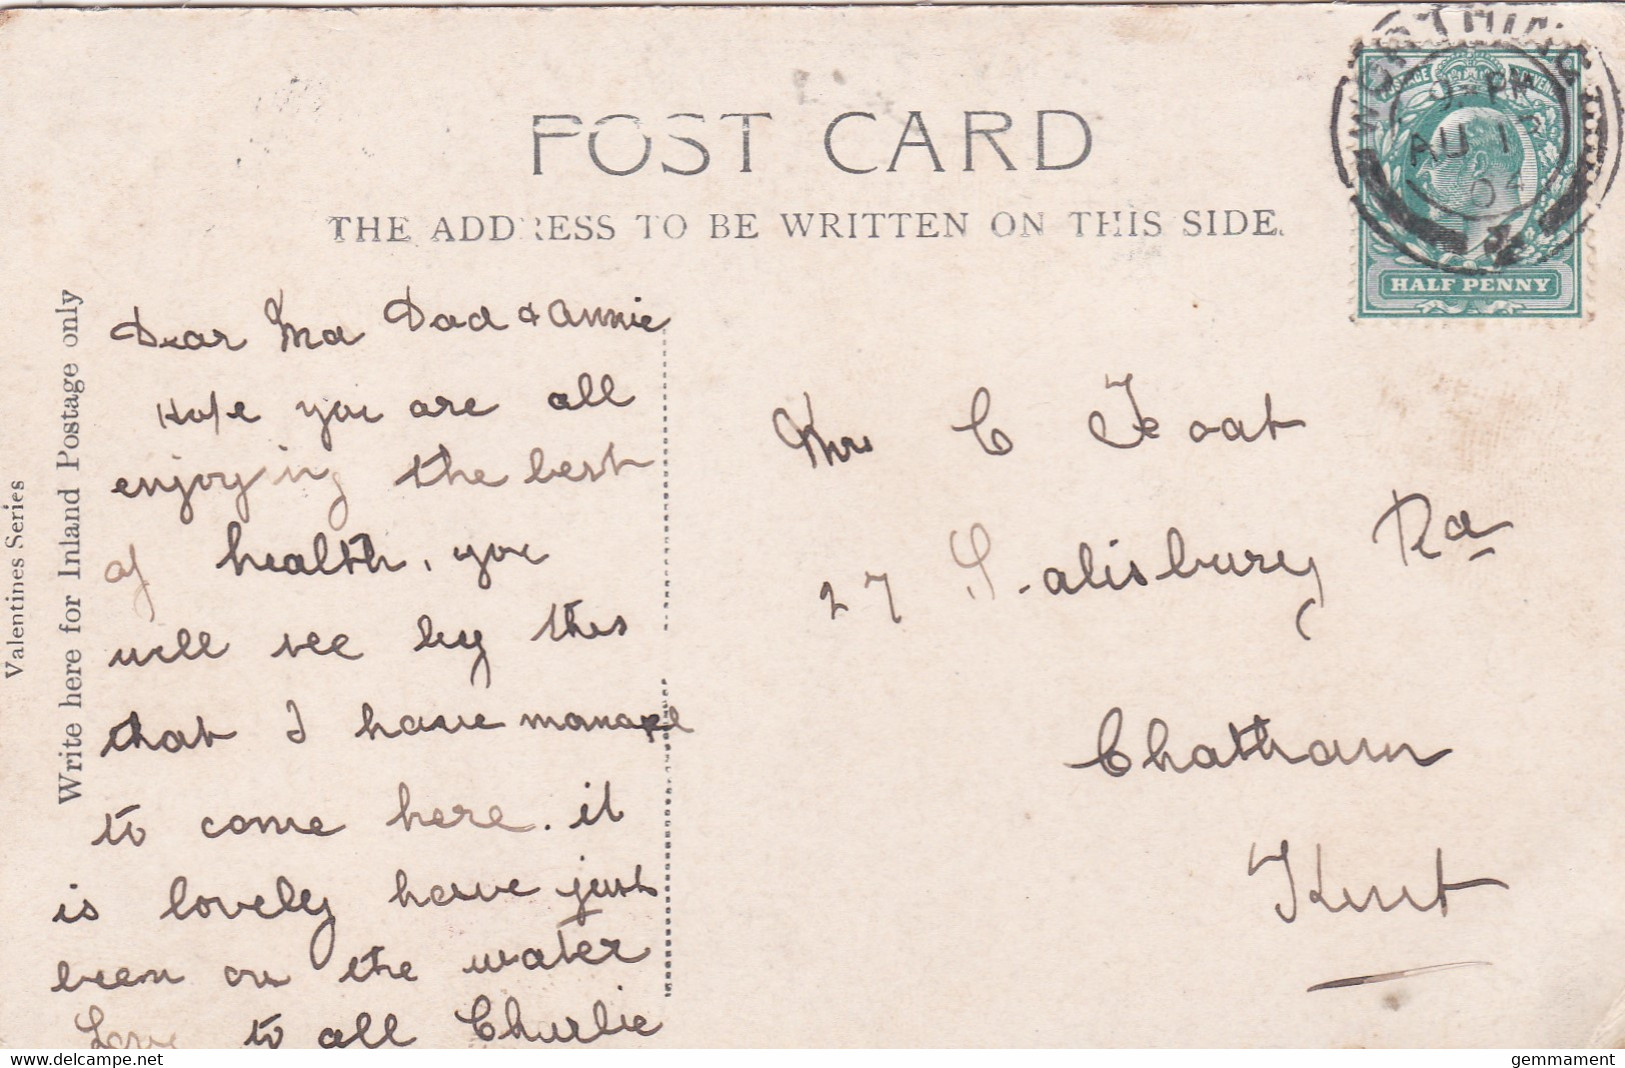 POST CARD
THE ADDRESS TO BE WRITTEN ON THIS SIDE.
WORTHING
PM
AU 1
HALF PENNY
Valentines Series
Write here for Inland Postage only
Dear Ma Dad & Annie
Hope you are all
enjoying the best
of health. you
will see by this
that I have manage
to come here. it
is lovely have just
been on the water
Love to all Charlie
Mrs C
27 Salisbury Rd
Chatham
Kent
gemmament